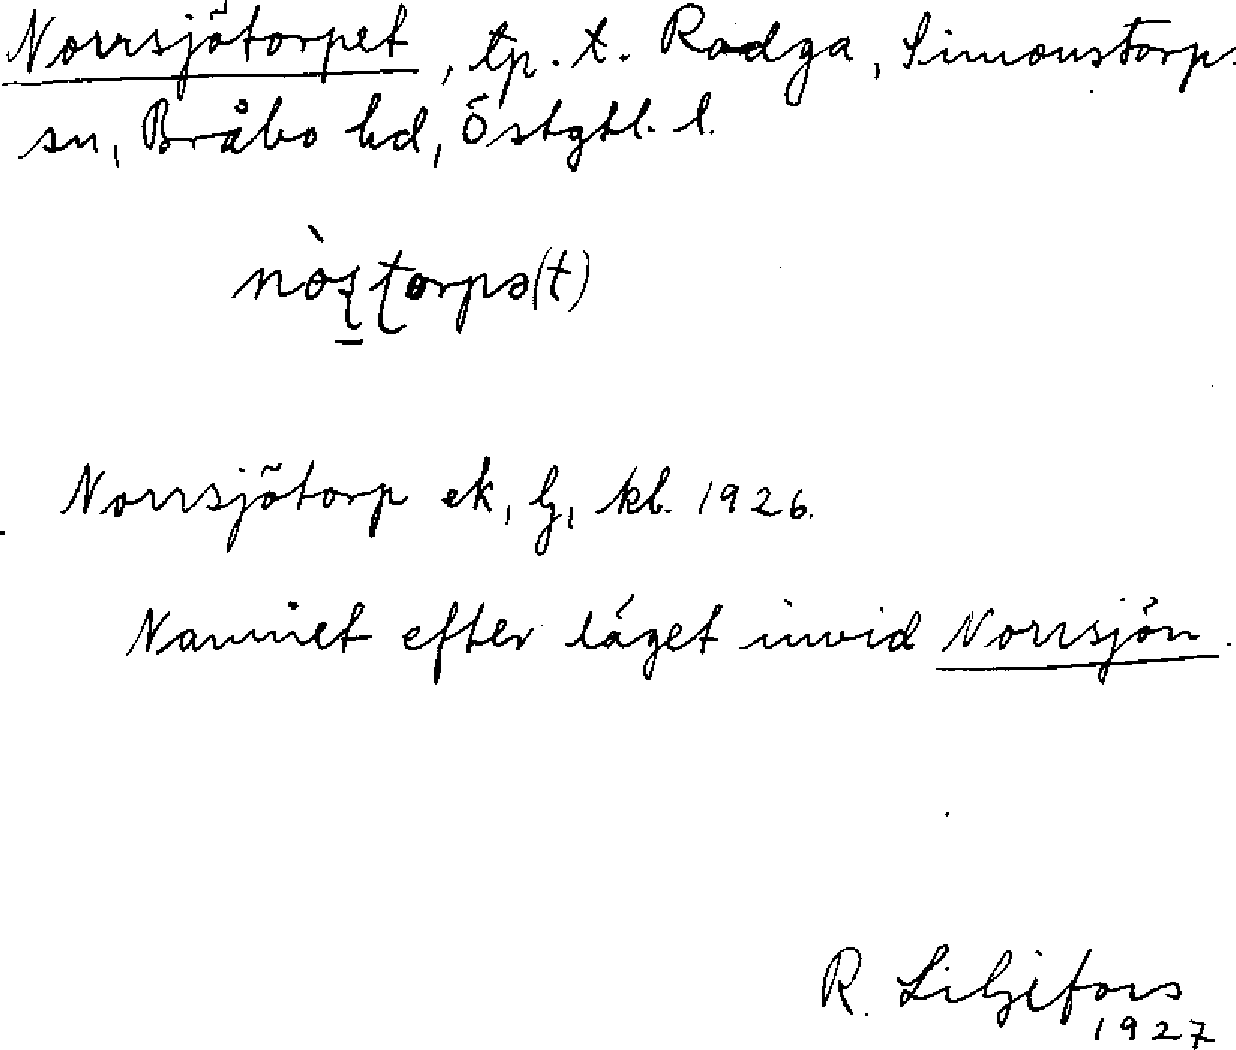 Norrsjötorpet, tp. t. Rodga, Simonstorp.
sn, Bråbo hd, Östgtl. l.
Norrsjötorp ek, lj, kbl. 1926.
Namnet efter läget invid Norrsjön.
R. Liljefors
1927